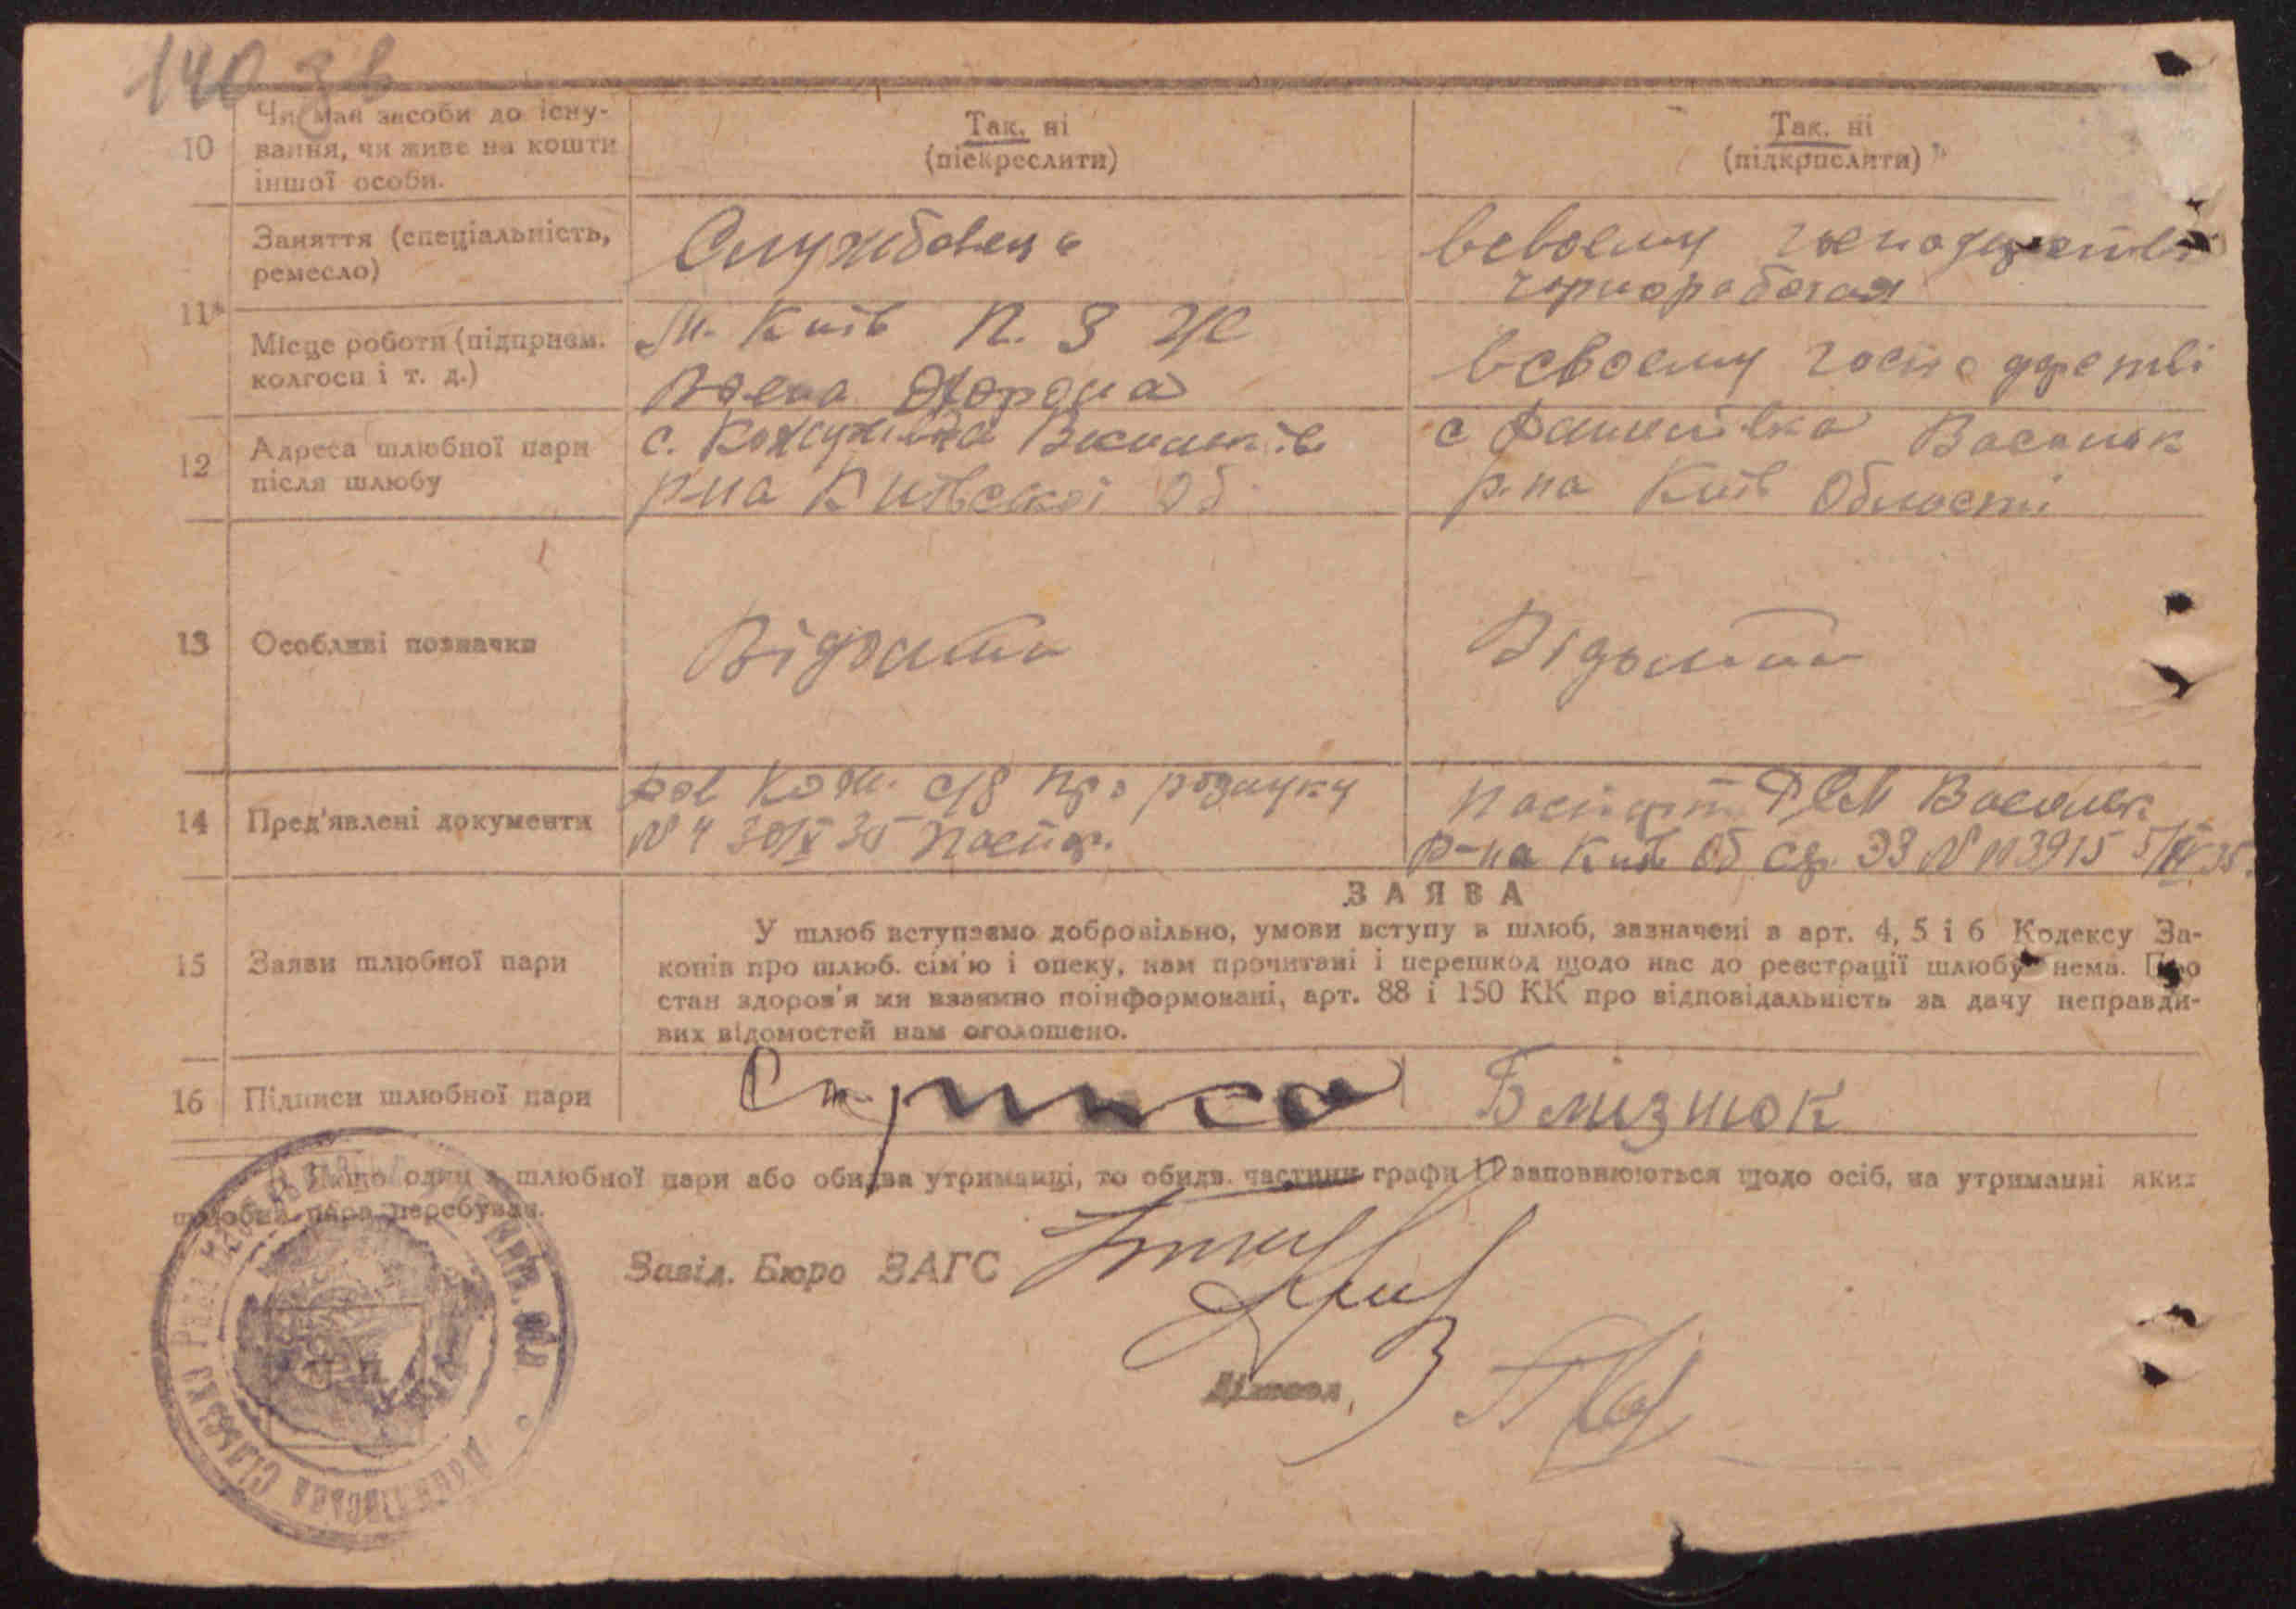 140 зв
10
Чи має засоби до існу-
вання, чи живе на кошти
іншої особи.
Так, ні
(піекреслити)
Так, ні
(підкрпслити)
11
Заняття (спеціальність,
ремесло)
Службовець
всвоєму
чорноработая
Місце роботи (підприєм.
колгосп і т. д.)
М. Київ П. З. Ж
Воена Охорона
всвоєму
12
Адреса шлюбної пари
після шлюбу
с. Кожухівка Васильків
р-на Київської Об
с Данилівка Васильк
р-на Київ Області
13
Особливі позначки
14
Пред'явлені документи
Дов Кож. с/р про розлуку
№ 4 30/X 35 Паспор.
Паспорт РСМ Васильк
р-на Київ Об ЭЗ № 35
15
Заяви шлюбної пари
ЗАЯВА
У шлюб вступаємо добровільно, умови вступу в шлюб, зазначені в арт. 4, 5 і 6 Кодексу За-
конів про шлюб. сім'ю і опеку, нам прочитані і перешкод щодо нас до реєстрації шлюбу нема. Про
стан здоров'я ми взаємно поінформовані, арт. 88 і 150 КК про відповідальність за дачу неправди-
вих відомостей нам оголошено.
16
Підписи шлюбної пари
Близнюк
Якщо один з шлюбної пари або обидва утриманці, то обидв. частини графи заповнюються щодо осіб, на утриманні яких
шлюбна пара перебуває.
Завід. Бюро ЗАГС
Діловод,